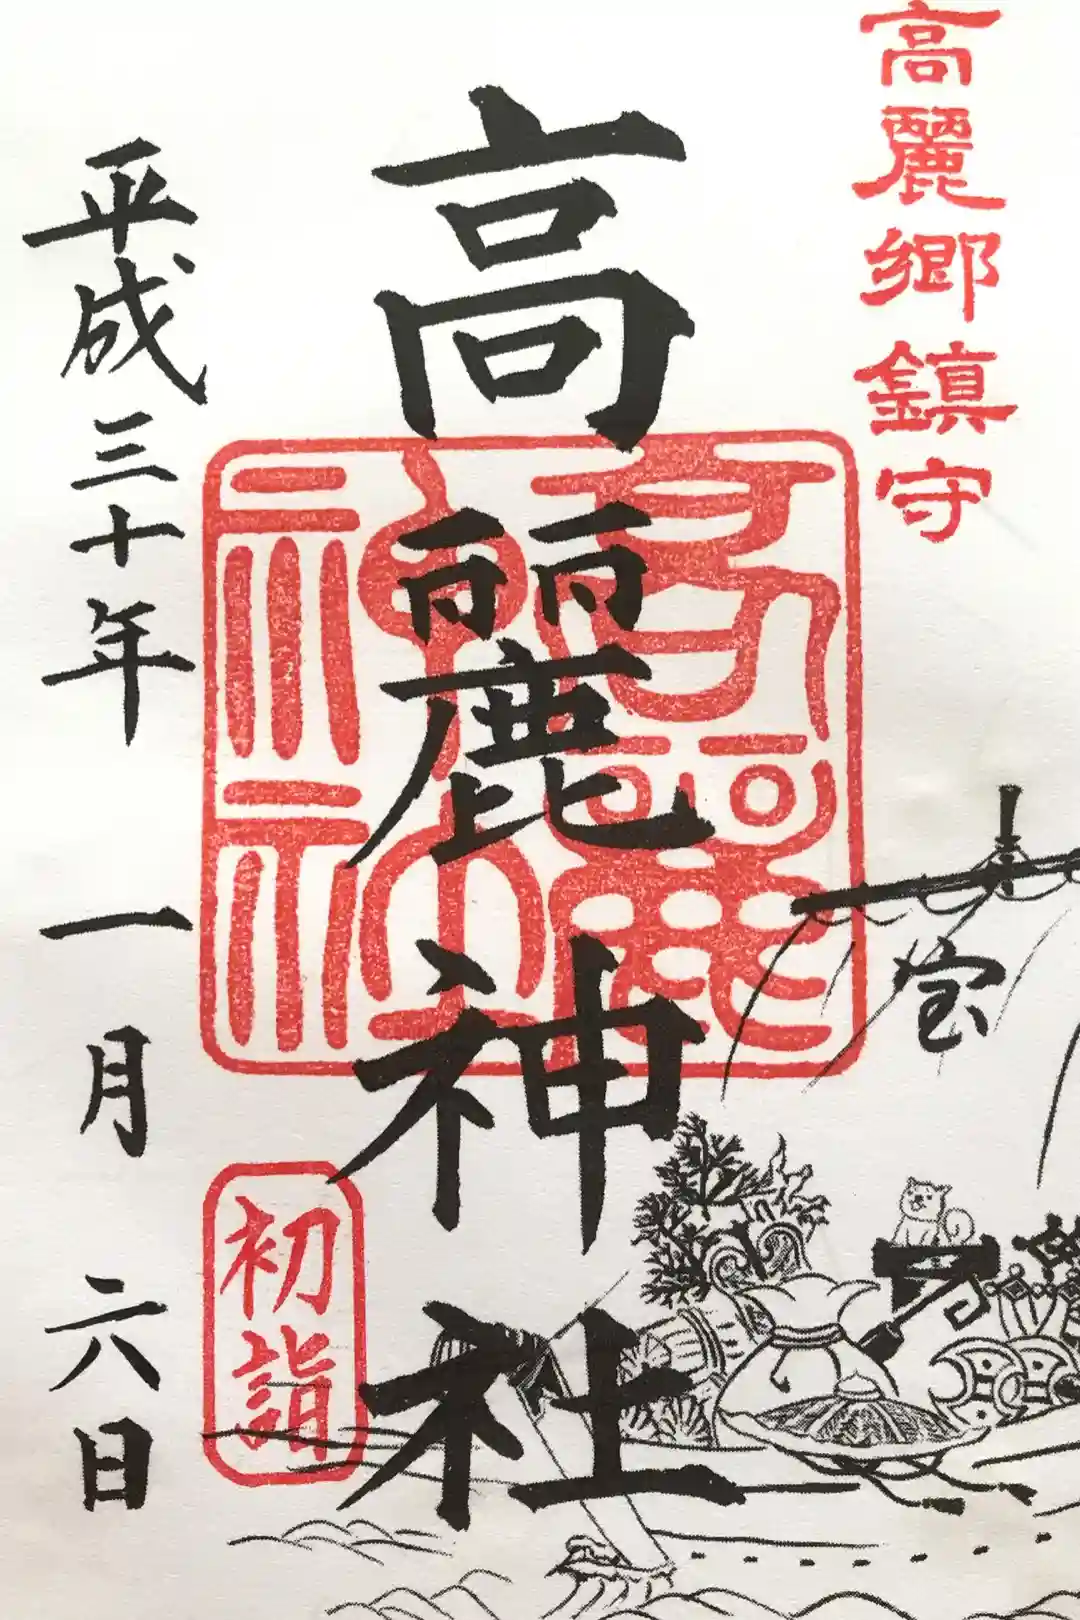 高麗郷鎮守
高麗神社
高麗神社
宝
初詣
平成三十年一月六日